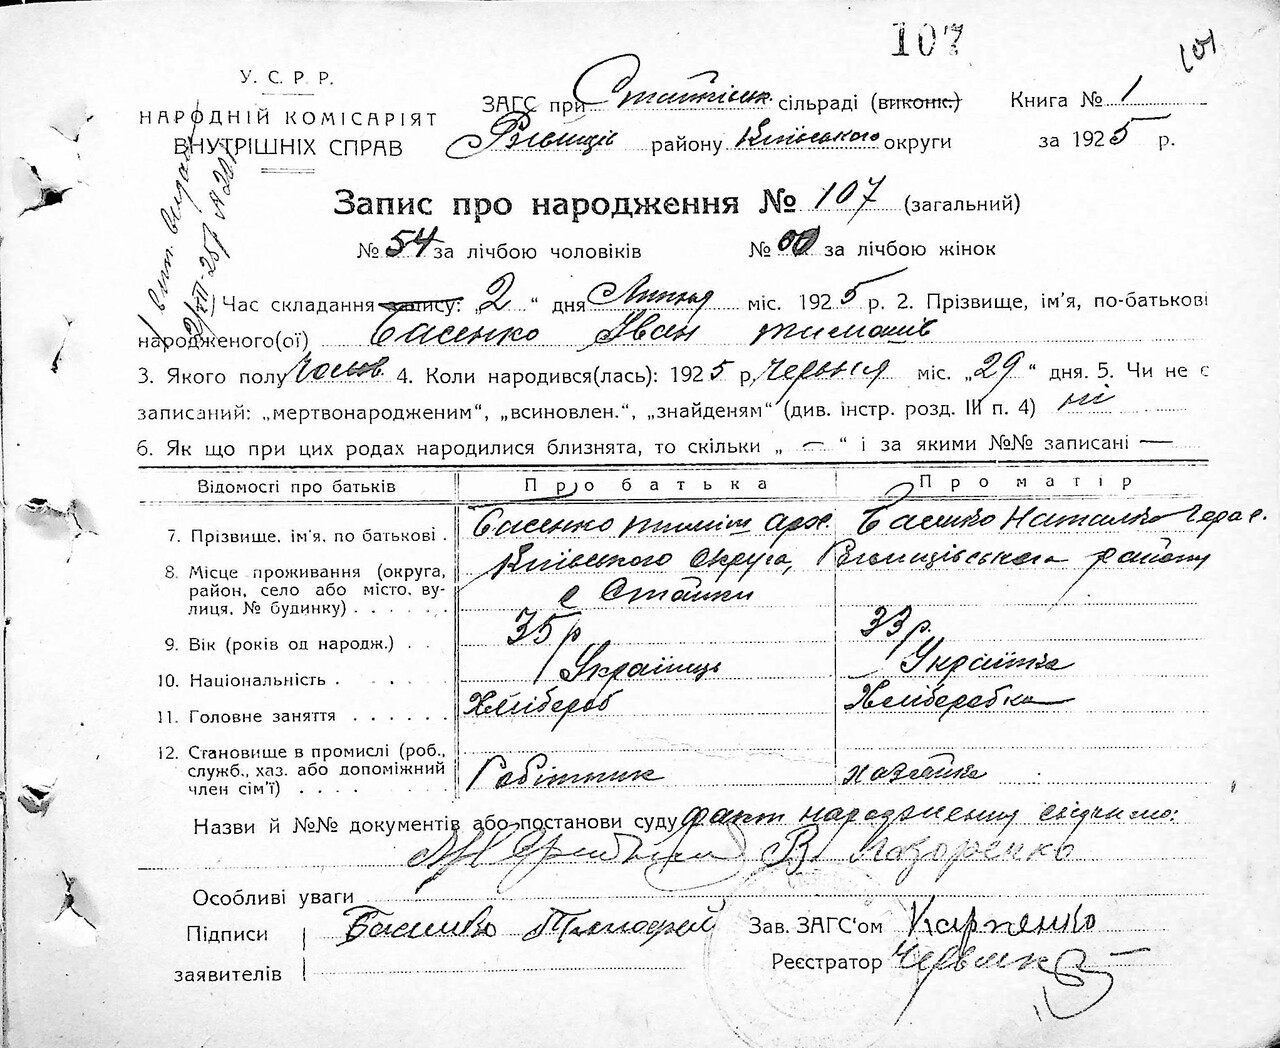 107
101
У. С. Р. Р.
НАРОДНІЙ КОМІСАРІЯТ
ВНУТРІШНІХ СПРАВ
ЗАГС при сільраді (виконк.) Книга № 1
району Київського округи за 1925 р.
Запис про народження № 107 (загальний)
№ 54 за лічбою чоловіків № 00 за лічбою жінок
1) Час складання запису: „2“ дня Липня міс. 1925 р. 2. Прізвище, ім'я, по-батькові
народженого(ої) Басенко Іван Тимошів
3. Якого полу Чолов. 4. Коли народився(лась): 1925 р. Червня міс. „29“ дня. 5. Чи не є
записаний: „мертвонародженим“, „всиновлен.“, „знайденям“ (див. інстр. розд. III п. 4) ні
6. Як що при цих родах народилися близнята, то скільки „ — “ і за якими №№ записані —
Відомості про батьків Про батька Про матір
7. Прізвище, ім'я, по батькові . Басенко Тиміш Арх. Басенко Наталка Герас.
8. Місце проживання (округа, район, село або місто, вулиця, № будинку) . . . . . . Київського округа, району
с Стайки
9. Вік (років од народж.) . . 35 р 33 р.
10. Національність . . . . . . Українець Українка
11. Головне заняття . . . . . . Хлібороб Хліборобка
12. Становище в промислі (роб., служб., хаз. або допоміжний член сім'ї) . . . . . Робітник хазяйка
Назви й №№ документів або постанови суду факт народження свідчимо:
В. Лазоренко
Особливі уваги
Підписи заявителів Басенко Тимофей
Зав. ЗАГС'ом Карпенко
Реєстратор